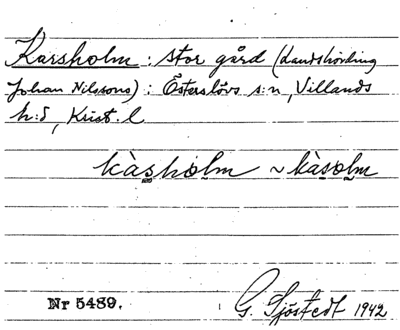 Karsholm: stor gård (Landshövding
Johan Nilssons): Österslövs s:n, Villands
h:d, Krist. l
kàsholm ~ kàsolm
Nr 5489. G. Sjöstedt 1942